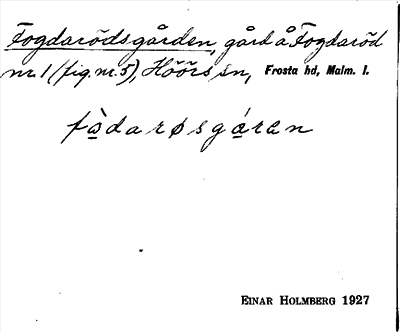 Fogdarödsgården, gård å Fogdaröd
nr. 1 (fig. nr. 5), Höörs sn, Frosta hd, Malm. l.
fò̱darøsgá̱ran
EINAR HOLMBERG 1927